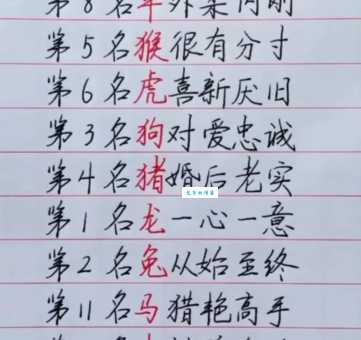 第8名 外柔内刚
第5名猴很有分寸
第6名虎喜新厌旧
第3名狗对爱忠诚
第4名猪婚后老实
第1名龙一心一意
第2名兔从始至终
第11名马猎艳高手